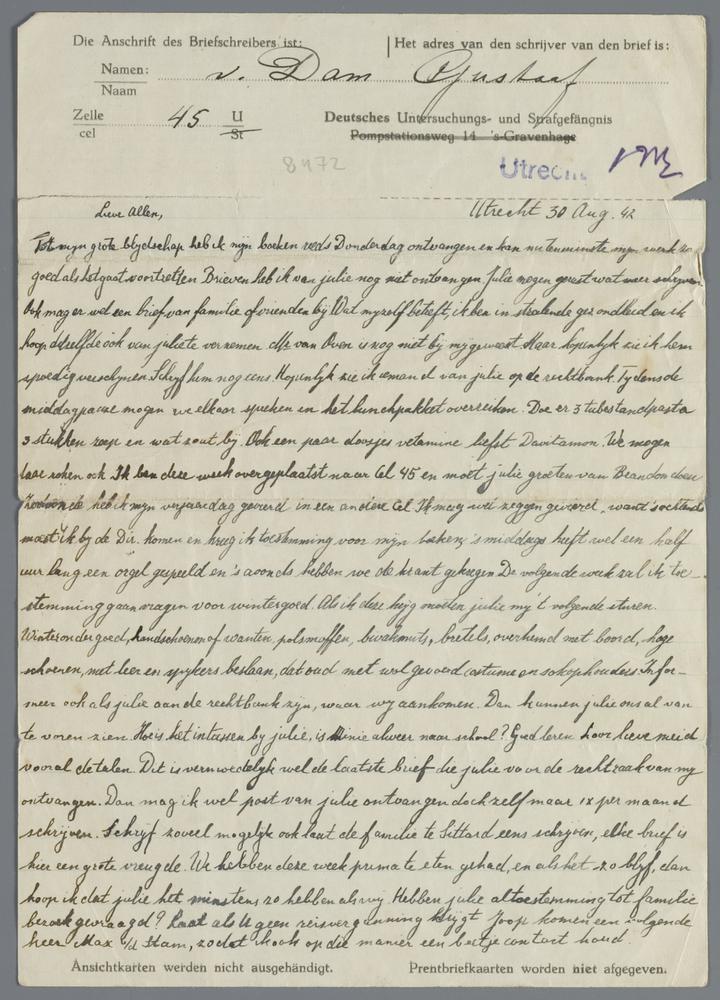 Die Anschrift des Briefschreibers ist: Het adres van den schrijver van den brief is:
Namen: v. Dam Gustaaf
Naam
Zelle 45 U Deutsches Untersuchungs- und Strafgefängnis
cel St Pompstationsweg 14 's-Gravenhage
8472 Utrecht
Lieve Allen, Utrecht 30 Aug. 42
Tot mijn grote blijdschap heb ik mijn boeken reeds Donderdag ontvangen en kan nu tenminste mijn werk zo
goed als het gaat voortzetten Brieven heb ik van julie nog niet ontvangen. Julie mogen gerust wat meer schrijven
Ook mag er wel een brief van familie of vrienden bij Wat mijzelf betreft, ik ben in stralende gezondheid en ik
hoop dezelfde ook van julie te vernemen. Mr van Oven is nog niet bij mij geweest. Maar hopenlijk zie ik hem
spoedig verschijnen. Schrijf hem nog eens. Hopenlijk zie ik iemand van julie op de rechtbank. Tijdens de
middagpauze mogen we elkaar spreken en het lunchpakket overreiken. Doe er 3 tubes tandpasta
3 stukken zeep en wat zout bij. Ook een paar doosjes vetamine liefst Davitamon. We mogen
daar roken ook. Ik ben deze week overgeplaatst naar Cel 45 en moet julie groeten van Brandon doen
heb ik mijn verjaardag gevierd in een andere Cel. Ik mag wel zeggen gevierd, want 's ochtends
moest ik bij de Dir. komen en kreeg ik toestemming voor mijn boeken, 's middags heeft wel een half
uur lang een orgel gespeeld en 's avonds hebben we de krant gekregen De volgende week zal ik toe-
stemming aanvragen voor wintergoed. Als ik deze krijg moeten julie mij 't volgende sturen.
Winterondergoed, handschoenen of wanten, polsmoffen, bivakmuts, bretels, overhemd met boord, hoge
schoenen, met leer en spijkers beslaan, dat oud met wol gevoerd costume en sokophouders. Infor-
meer ook als julie aan de rechtbank zijn, waar wij aankomen. Dan kunnen julie ons al van
te voren zien. Hoe is het intussen bij julie, is Minie alweer naar school? Goed leren hoor lieve meid
vooral de talen. Dit is vermoedelijk wel de laatste brief die julie voor de rechtzaak van mij
ontvangen. Dan mag ik wel post van julie ontvangen doch zelf maar 1x per maand
schrijven. Schrijf zoveel mogelijk ook laat de familie te Sittard eens schrijven, elke brief is
hier een grote vreugde. We hebben deze week prima te eten gehad, en als het zo blijf, dan
hoop ik dat julie het minstens zo hebben als wij. Hebben julie al toestemming tot familie
bezoek gevraagd? Laat als U geen reisvergunning krijgt Joop komen een volgende
keer Max v/d Ham, zodat ik ook op die manier een beetje contact houd.
Ansichtkarten werden nicht ausgehändigt. Prentbriefkaarten worden niet afgegeven.